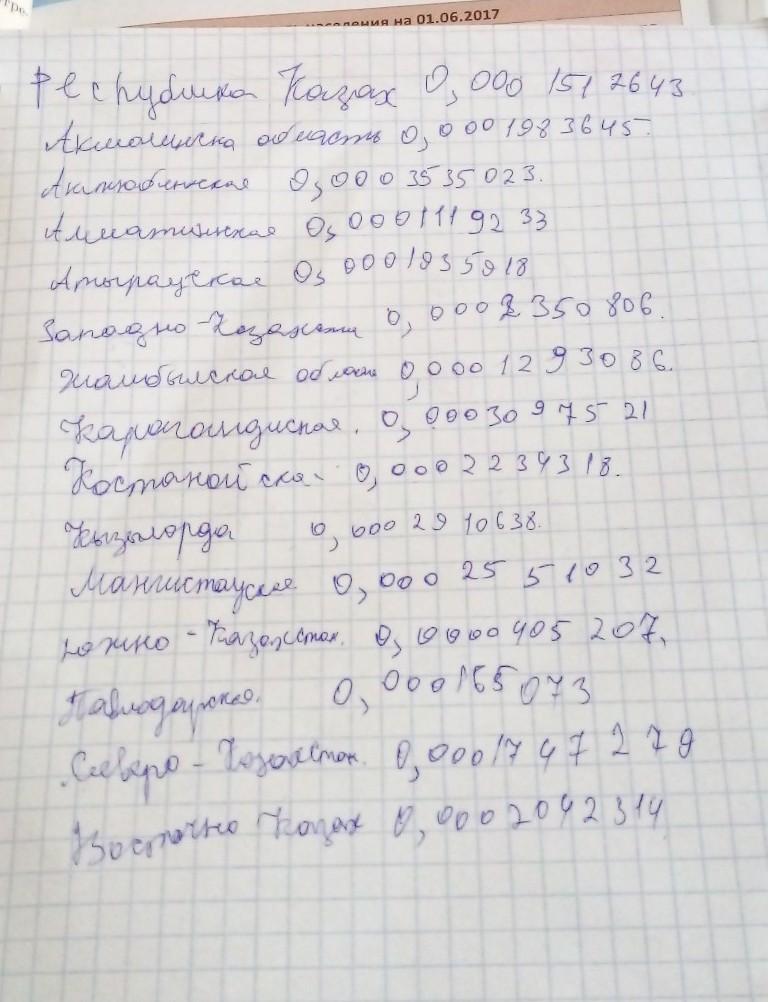 населения на 01.06.2017
Республика Казах 0,000 151 2643
Акмолинска область 0,0001983645.
Актюбинская 0,0003535023.
Алматинская 0,000111 92 33
Атырауская 0,0001935918
Западно-Казахста 0,0002350806.
Жамбылская област 0,0001293086.
Карагандиская. 0,0003097521
Костанайска 0,0002234318.
Кызылорда 0,0002910638.
Мангистауская 0,000 25 51032
Южно-Казахстан. 0,0000405 207.
Павлодарская. 0,000165073
Северо-Казахстан. 0,0001747279
Восточно Казах 0,0002042314